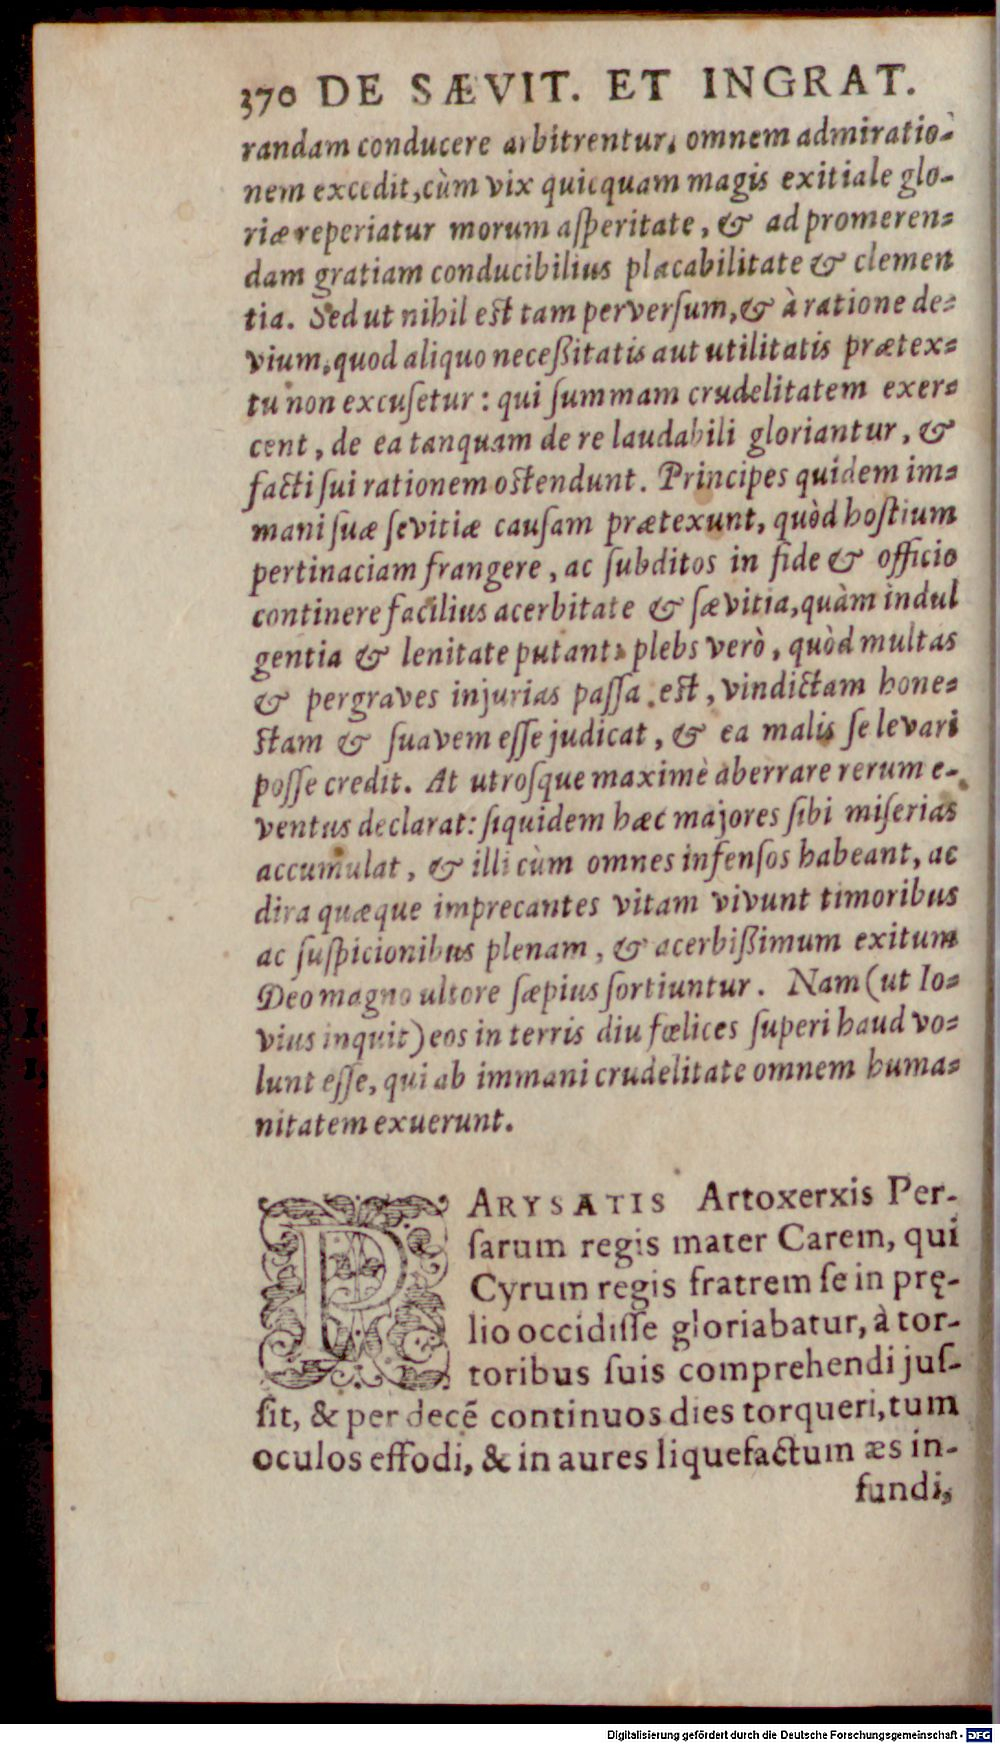 370 DE SÆVIT. ET INGRAT.
randam conducere arbitrentur, omnem admiratio-
nem excedit, cùm vix quicquam magis exitiale glo-
riæ reperiatur morum aſperitate, & ad promeren-
dam gratiam conducibilius placabilitate & clemen
tia. Sed ut nihil est tam perverſum, & à ratione de-
vium, quod aliquo neceßitatis aut utilitatis prætex-
tu non excuſetur: qui ſummam crudelitatem exer-
cent, de ea tanquam de re laudabili gloriantur, &
facti ſui rationem ostendunt. Principes quidem im-
mani ſuæ ſevitiæ cauſam prætexunt, quòd hoſtium
pertinaciam frangere, ac ſubditos in fide & officio
continere facilius acerbitate & ſævitia, quàm indul
gentia & lenitate putant: plebs verò, quòd multas
& pergraves injurias paſſa est, vindictam hone-
stam & ſuavem eſſe judicat, & ea malis ſe levari
poſſe credit. At utroſque maximè aberrare rerum e-
ventus declarat: ſiquidem hæc majores ſibi miſerias
accumulat, & illi cùm omnes infenſos habeant, ac
dira quæque imprecantes vitam vivunt timoribus
ac ſuſpicionibus plenam, & acerbißimum exitum
Deo magno ultore ſæpius ſortiuntur. Nam (ut Io-
vius inquit) eos in terris diu fœlices ſuperi haud vo-
lunt eſſe, qui ab immani crudelitate omnem huma-
nitatem exuerunt.
PARYSATIS Artoxerxis Per-
ſarum regis mater Carem, qui
Cyrum regis fratrem ſe in prę-
lio occidiſſe gloriabatur, à tor-
toribus ſuis comprehendi juſ-
ſit, & per decē continuos dies torqueri, tum
oculos effodi, & in aures liquefactum æs in-
fundi,
Digitalisierung gefördert durch die Deutsche Forschungsgemeinschaft - DFG